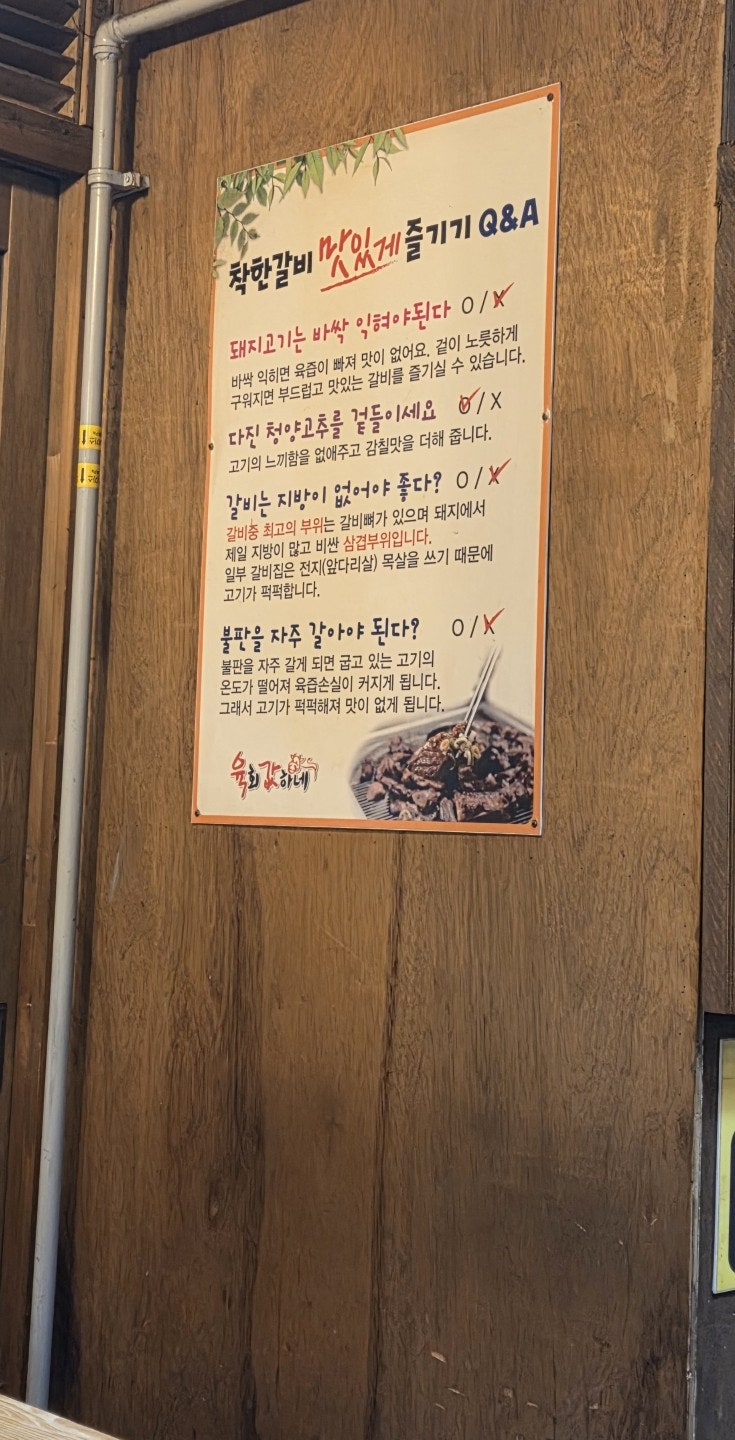 착한갈비 맛있게 즐기기 Q&A
돼지고기는 바싹 익혀야된다 O / X
바싹 익히면 육즙이 빠져 맛이 없어요. 겉이 노릇하게
구워지면 부드럽고 맛있는 갈비를 즐기실 수 있습니다.
다진 청양고추를 곁들이세요 O / X
고기의 느끼함을 없애주고 감칠맛을 더해 줍니다.
갈비는 지방이 없어야 좋다? O / X
갈비중 최고의 부위는 갈비뼈가 있으며 돼지에서
제일 지방이 많고 비싼 삼겹부위입니다.
일부 갈비집은 전지(앞다리살) 목살을 쓰기 때문에
고기가 퍽퍽합니다.
불판을 자주 갈아야 된다? O / X
불판을 자주 갈게 되면 굽고 있는 고기의
온도가 떨어져 육즙손실이 커지게 됩니다.
그래서 고기가 퍽퍽해져 맛이 없게 됩니다.
육회값하네